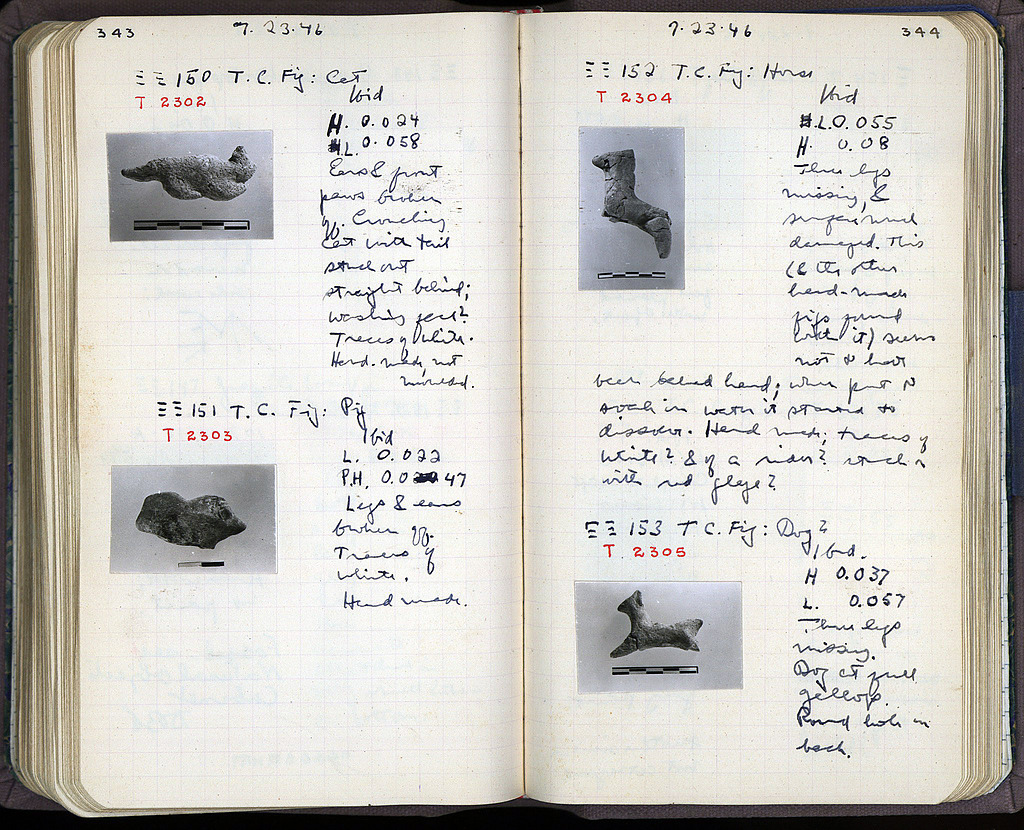 343
7.23.46
ΞΞ 150 T.C. Fig: Cat
T 2302
Ibid
H. 0.024
L. 0.058
Ears & front
paws broken
off. Crouching
Cat with tail
stuck out
straight behind;
washing face?
Traces of white.
Hand-made, not
moulded.
ΞΞ 151 T.C. Fig: Pig
T 2303
Ibid
L. 0.022
P.H. 0.047
Legs & ears
broken off.
Traces of
white.
Hand made.
7.23.46
344
ΞΞ 152 T.C. Fig: Horse
T 2304
Ibid
L. 0.055
H. 0.08
Three legs
missing, &
surface much
damaged. This
(& the other
hand-made
figs found
with it) seems
not to have
been baked hard; when put to
soak in water it started to
dissolve. Hand made; traces of
white? & of a rider? stuck on
with red glaze?
ΞΞ 153 T.C. Fig: Dog?
T 2305
Ibid.
H 0.037
L. 0.057
Three legs
missing.
Dog at full
gallop.
Round hole in
back.